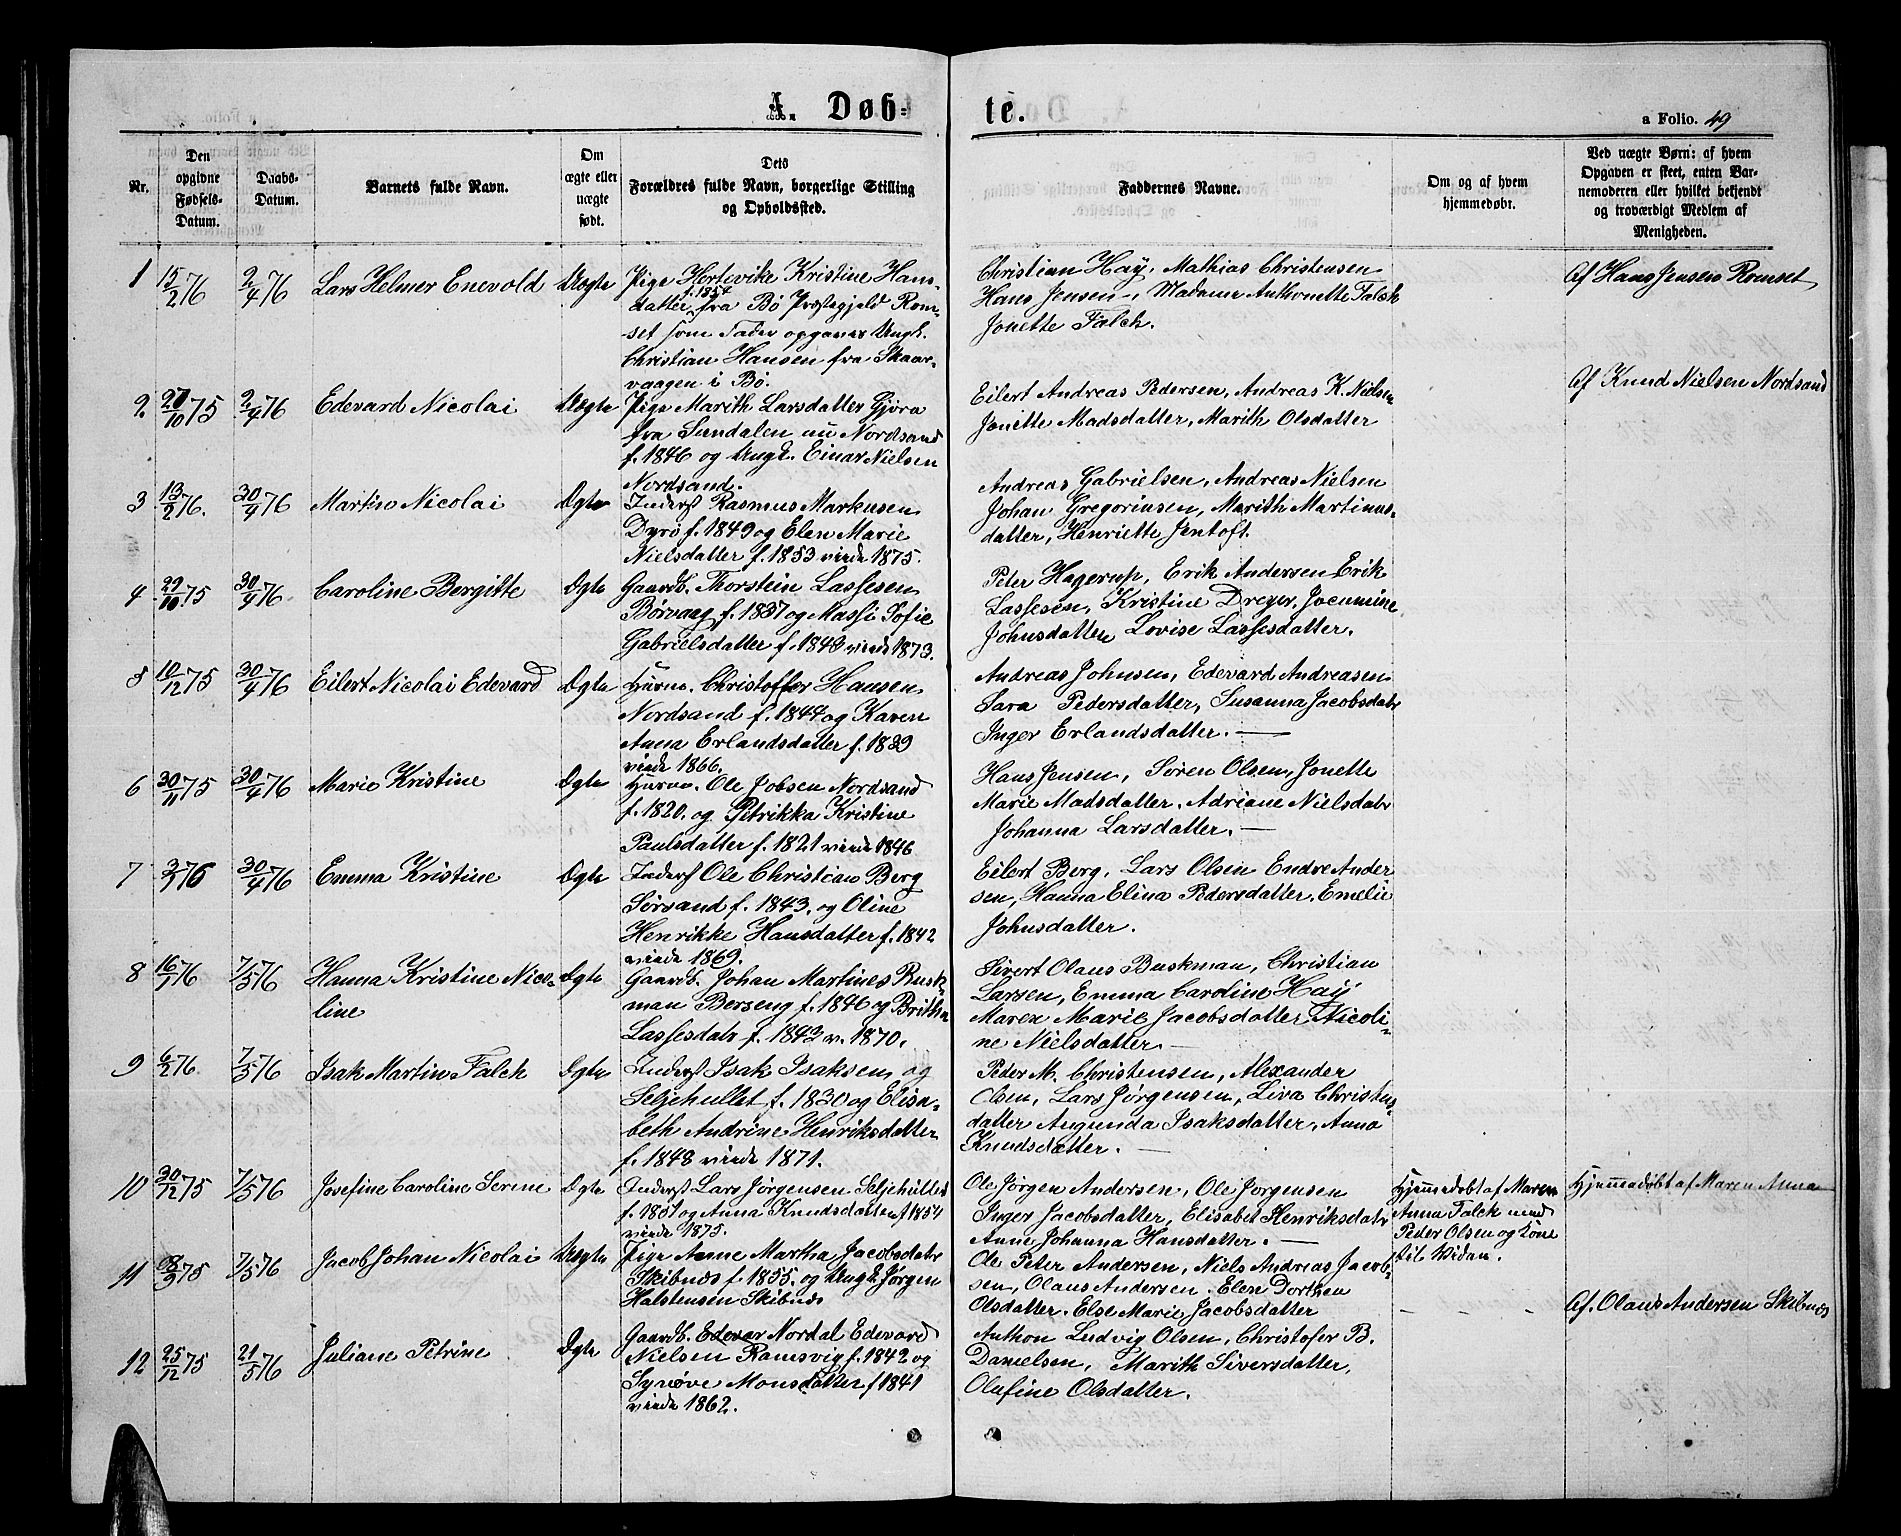 A. Døb-
te.
a Folio. 49
Nr.
Den opgivne Fødsels-Datum.
Daabs-Datum.
Barnets fulde Navn.
Om ægte eller uægte født.
Dets Forældres fulde Navn, borgerlige Stilling og Opholdssted.
Faddernes Navne.
Om og af hvem hjemmedøbt.
Ved uægte Børn: af hvem Opgaven er skeet, enten Barnemoderen eller hvilket bekjendt og troværdigt Medlem af Menigheden.
1 15/2 76 2/4 76 Lars Helmer Enevold Uægte
Pige Hertevike Kristine Hans-
datter f. 1854 fra Bø Præstegjeld Rom-
set som Fader opgaves Ungk.
Christian Hansen fra Skaar-
vaagen i Bø.
Christian Hay, Mathias Christensen
Hans Jensen, Madame Anthonette Falch
Jonette Falch.
Af Hans Jensen Romset
2. 27/10 75 2/4 76 Edevard Nicolai Uægte
Pige Marith Larsdatter Gjøra
fra Sundalen nu Nordsand
f. 1846 og Ungk. Einar Nielsen
Nordsand.
Eilert Andreas Pedersen, Andreas K. Nielsen
Jonette Madsdatter, Marith Olsdatter
Af Knud Nielsen Nordsand
3 13/2 76. 30/4 76 Martin Nicolai Ægte
Inderst Rasmus Markusen
Dyrø f. 1849 og Elen Marie
Nielsdatter f. 1853 viede 1875.
Andreas Gabrielsen, Andreas Nielsen
Johan Gregoriusen, Marith Martinus-
datter, Henriette Jentoft.
4 29/10 75 30/4 76 Caroline Bergitte Ægte
Gaardb. Thorstein Lassesen
Børvaag f. 1837 og Massi Sofie
Gabrielsdatter f. 1848 viede 1873.
Peter Hagerup, Erik Andersen Erik
Lassesen, Kristine Dreyer, Jacumine
Johnsdatter Lovise Lassesdatter.
5 10/12 75 30/4 76 Eilert Nicolai Edevard Ægte
Huusm. Christoffer Hansen
Nordsand f. 1844 og Karen
Anna Erlandsdatter f. 1839
viede 1866.
Andreas Johnsen, Edevard Andreasen
Sara Pedersdatter, Susanna Jacobsdatr
Inger Erlandsdatter.
6 30/11 75 30/4 76 Marie Kristine Ægte
Huusm. Ole Jobsen Nordsand
f. 1820. og Petrikka Kristine
Paulsdatter f. 1821 viede 1846
Hans Jensen, Søren Olsen, Jonette
Marie Madsdatter, Adriane Nielsdatr
Johanna Larsdatter.
7 3/1 76 30/4 76 Emma Kristine Ægte
Inderst Ole Christian Berg
Sørsand f. 1843. og Oline
Henrikke Hansdatter f. 1842
viede 1869.
Eilert Berg, Lars Olsen Endre Ander
sen, Hanna Elina Pedersdatter, Emelie
Johnsdatter.
8 16/1 76 7/5 76 Hanna Kristine Nico-
line Ægte
Gaardb. Johan Martines Busk-
man Berseng f. 1846 og Britha
Lassesdatr f. 1843 v. 1870.
Sivert Olaus Buskman, Christian
Larsen, Emma Caroline Hay
Maren Marie Jacobsdatter Nicoli-
ne Nielsdatter
9 6/2 76. 7/5 76 Isak Martin Falch Ægte
Inderst Isak Isaksen og
Seljehullet f. 1820 og Elisa-
beth Andrine Henriksdatter
f. 1848 viede 1871.
Peder M. Christensen, Alexander
Olsen, Lars Jørgensen, Liva Christens-
datter Augunda Isaksdatter, Anna
Knudsdatter.
10 30/12 75 7/5 76 Josefine Caroline Serine Ægte
Inderst Lars Jørgensen Seljehullet
f. 1851 og Anna Knudsdatter f 1854
viede 1875.
Ole Jørgen Andersen, Ole Jørgensen
Inger Jacobsdatter, Elisabet Henriksdatr
Anne Johanna Hansdatter.
Hjemmedøbt af Maren
Anna Falck med
Peder Olsen og Kone
til Vidner.
Hjemmedøbt af Maren Anna
11 75 7/5 76 Jacob Johan Nicolai Uægte
Pige Anne Martha Jacobsdatr
Skibnæs f. 1855. og Ungk Jørgen
Halstensen Skibnæs
Ole Peter Andersen, Niels Andreas Jacob-
sen, Olaus Andersen. Elen Dorthea
Olsdatter. Else Marie Jacobsdatter
Af. Olaus Andersen Skibnæs
12 25/12 75 21/5 76 Juliane Petrine Ægte
Gaardb. Edevar Nordal Edevard
Nielsen Ramsvig f. 1842 og
Synøve Monsdatter f 1841
viede 1862.
Anthon Ludvig Olsen, Christofer B.
Danielsen, Marith Siversdatter,
Olufine Olsdatter.